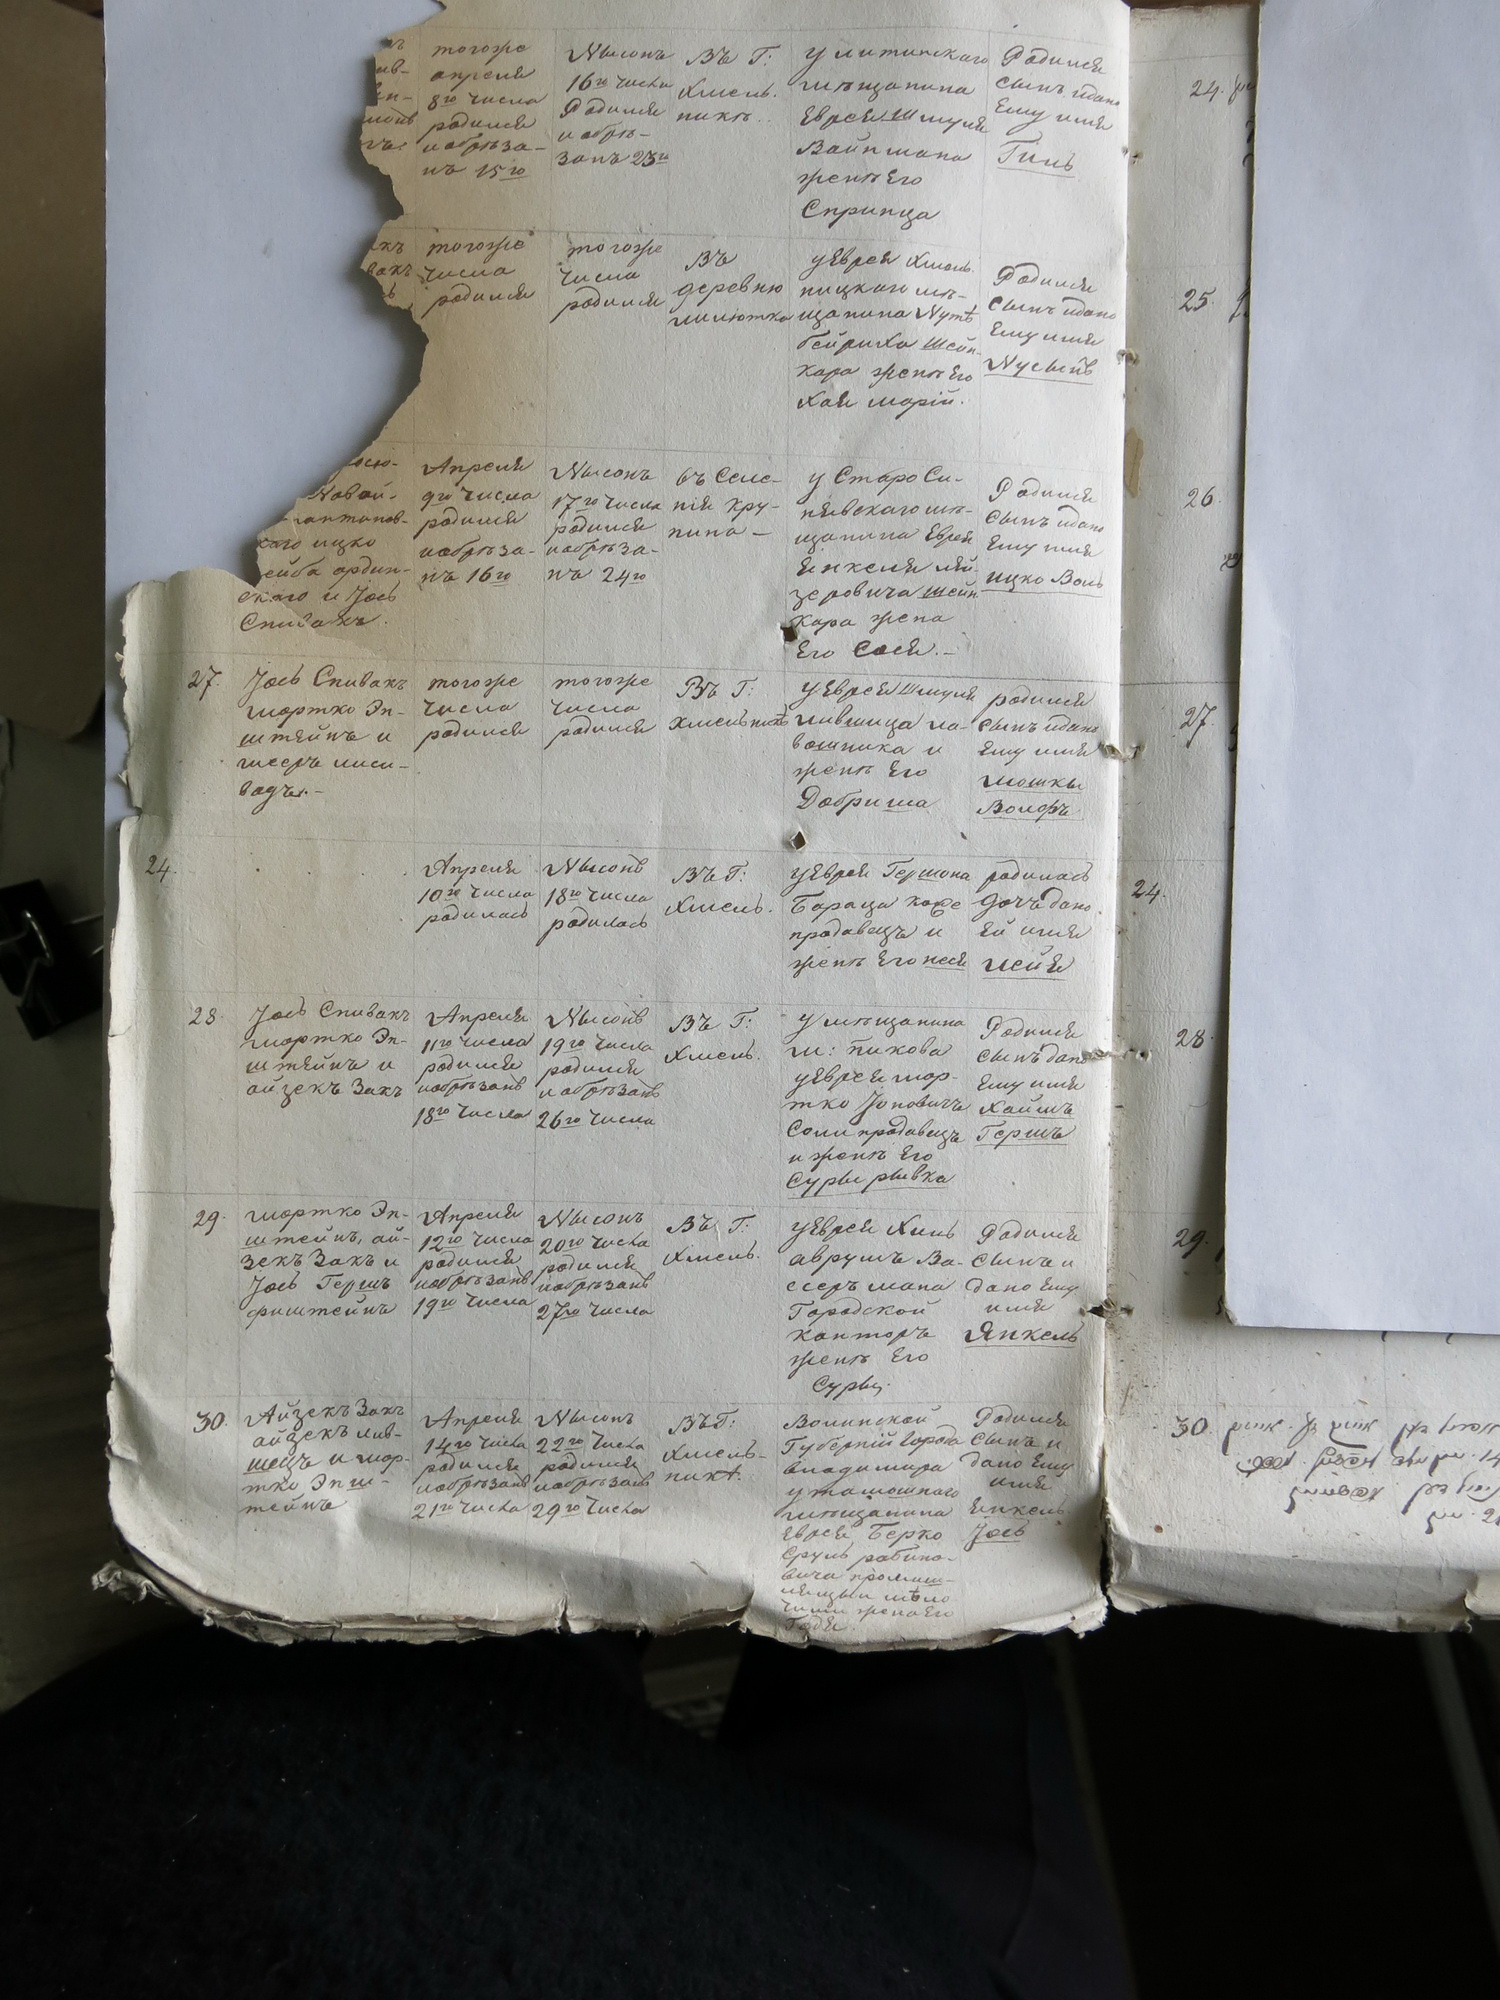 тогоже
апреля
8го числа
родился
и обрѣза-
нъ 15го
Нысонъ
16го числа
Родился
и обрѣ-
занъ 23го
Въ Г:
Хмель.
никѣ..
у литинскаго
мѣщанина
Еврея Шмуля
Вайнмана
жены Его
Спринца
Родился
сынъ и дано
Ему имя
Гиль
24.
тогоже
числа
родился
тогоже
числа
родился
Въ
деревню
у Еврея Хмель
ницкаго мѣ-
щанина Нутѣ
Бейриха Шейн-
кара женѣ Его
Хая марій.
Родился
сынъ и дано
Ему имя
Нусынъ
25.
каго ицко
ейба ордин-
скаго и Іось
Спивакъ.
Апреля
9го числа
родился
и обрѣза-
нъ 16го
Нысонъ
17го числа
родился
и обрѣза-
нъ 24го
въ Селе-
ніи Кру-
пина —
у Старо Си-
нявскаго мѣ-
щанина Еврея
Янкеля лей-
зеровича Шейн
кара жена
Его Сося. –
Родился
сынъ и дано
Ему имя
ицко Воль
26.
27. Іось Спивакъ
мортко Эп-
штейнъ и
мееръ лиси-
водъ. –
тогоже
числа
родился
тогоже
числа
родился
Въ Г:
Хмельникѣ
у Еврея Шмуля
лившица ла-
вошника и
женѣ Его
Добриша
родился
сынъ и дано
Ему имя
Мошкы
Волфъ
27.
24.
Апреля
10го числа
родилась
Нысонъ
18го числа
родилась
Въ Г:
Хмель.
у Еврея Гершона
Бараца
продавецъ и
женѣ Его неся
родилась
дочь дано.
Ей имя
24.
28. Іось Спивакъ
мортко Эп-
штейнъ и
айзекъ Закъ
Апреля
11го числа
родился
и обрѣзанъ
18го числа
Нысонъ
19го числа
родился
и обрѣзанъ
26го числа
Въ Г:
Хмель.
у мѣщанина
м: пикова
у Еврея мор-
тко Іоновичъ
Соли продавецъ
и женѣ Его
Суры рывка
Родился
сынъ дано
Ему имя
Хаимъ
Гершъ
28.
29. мортко Эп-
штейнъ, ай-
зекъ Закъ и
Іось Гершъ
финштейнъ
Апреля
12го числа
родился
и обрѣзанъ
19го числа
Нысонъ
20го числа
родился
и обрѣзанъ
27го числа
Въ Г:
Хмель.
у Еврея Хиль
аврумъ Ва-
ссерьмана
Городской
канторъ
женѣ Его
Суры.
Родился
сынъ и
дано Ему
имя
Янкель
29.
30. Айзекъ Закъ
айзекъ лив-
шецъ и мор-
тко Эпш-
тейнъ
Апреля
14го числа
родился
и обрѣзанъ
21го числа
Нысонъ
22го числа
родился
и обрѣзанъ
29го числа
Въ Г:
Хмель-
никѣ.
Волинской
Губерніи Города
владимира
у тамошнаго
мѣщанина
Еврея Берко
Сруль рабино-
вича промыш-
ляющи мѣло
чами жена Его
Годя.
Родился
сынъ и
дано Ему
имя
Янкель
Іось
30.